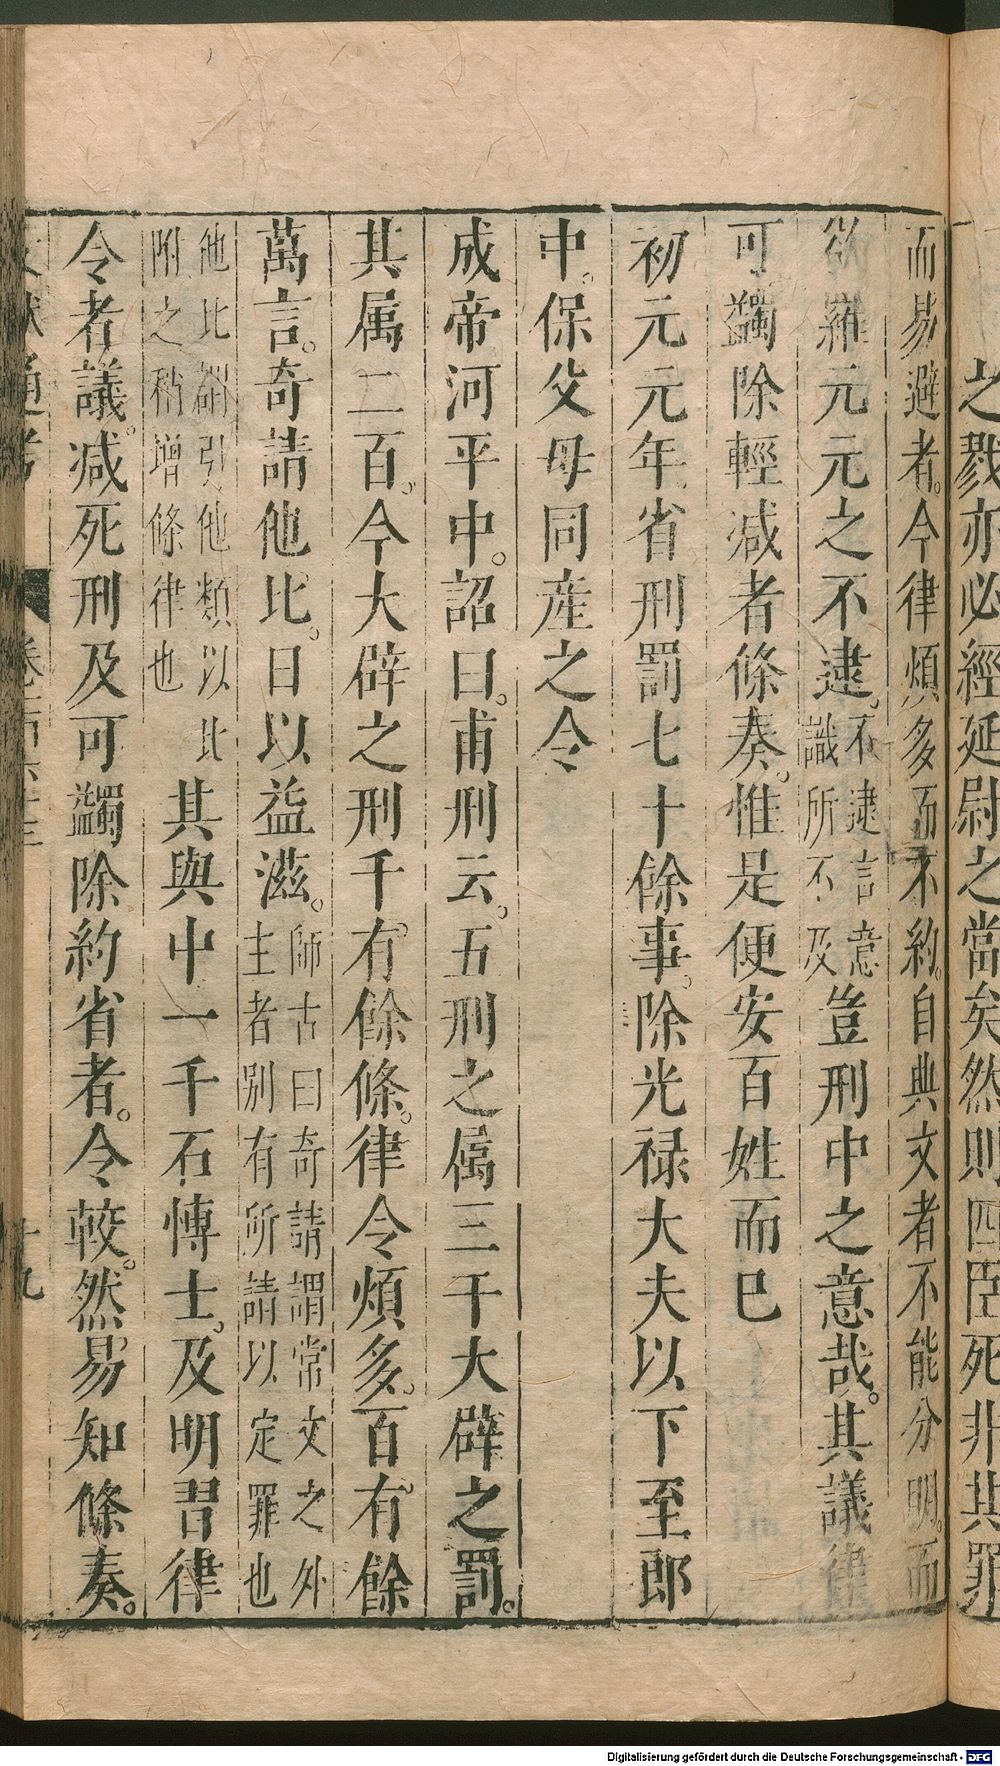 之戮亦必經延尉之當矣然則四臣死非其罪
而易避者。今律煩多而不約。自典文者不能分明。而
欲羅元元之不逮。不逮言意識所不及豈刑中之意哉。其議律
可蠲除輕减者條奏。惟是便安百姓而已
初元元年省刑罰七十餘事。除光禄大夫以下至郎
中。保父母同産之令
成帝河平中。詔曰。甫刑云。五刑之属三千大辟之罰。
其属二百。今大辟之刑千有餘條。律令煩多。百有餘
萬言。奇請他比。日以益滋。師古曰奇請謂常文之外主者別有所請以定罪也
他比謂引他類以比附之稍增條律也其與中二千石博士。及明習律
令者議。减死刑及可蠲除約省者。令較。然易知條奏。
文獻通考 卷一百六十三 十九
Digitalisierung gefördert durch die Deutsche Forschungsgemeinschaft - DFG